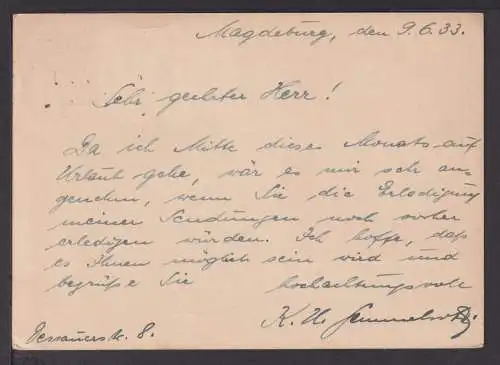 Magdeburg, den 9.6.33.
Sehr geehrter Herr!
Da ich Mitte dieses Monats auf
Urlaub gehe, wär es mir sehr an-
genehm, wenn Sie die Erledigung
meiner Sendungen noch vorher
erledigen würden. Ich hoffe, daß
es Ihnen möglich sein wird und
begrüße Sie hochachtungsvoll
K. H.
Dessauerstr. 8.